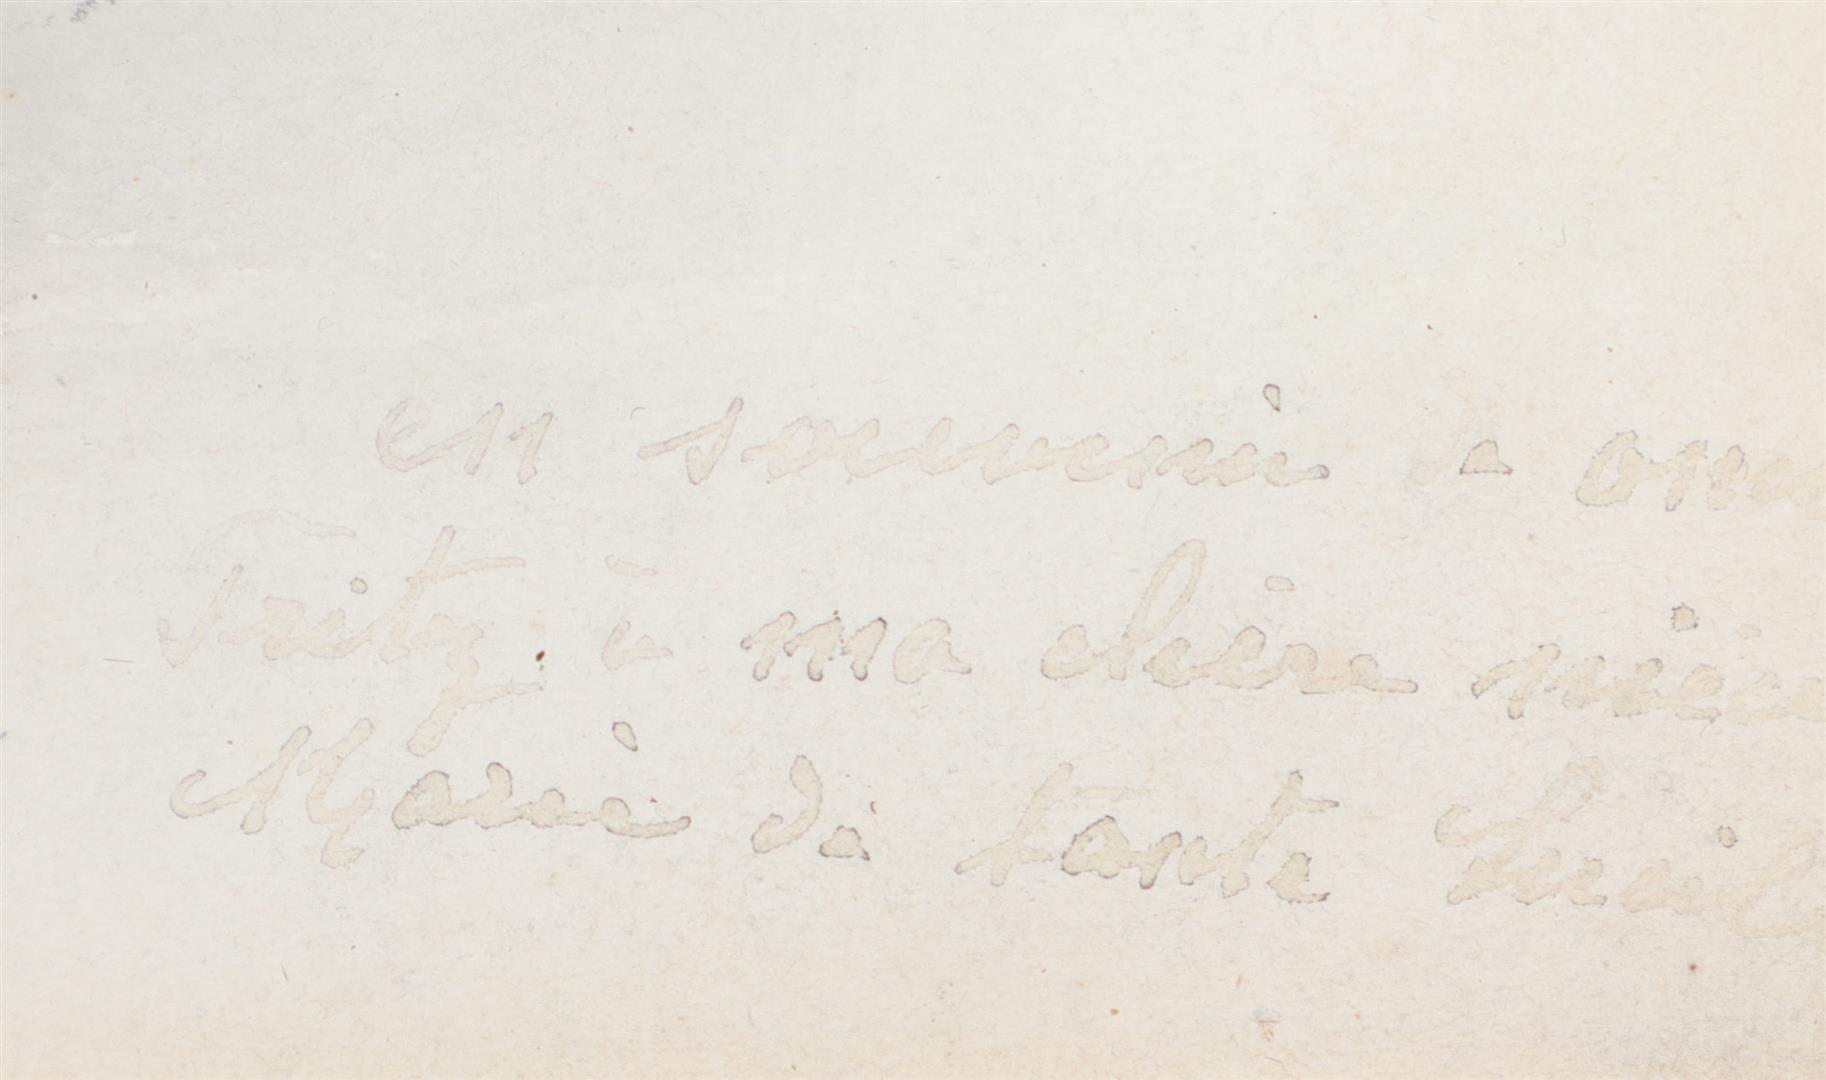 en souvenir a
Fritz. à ma chère nièce
Marie de tante